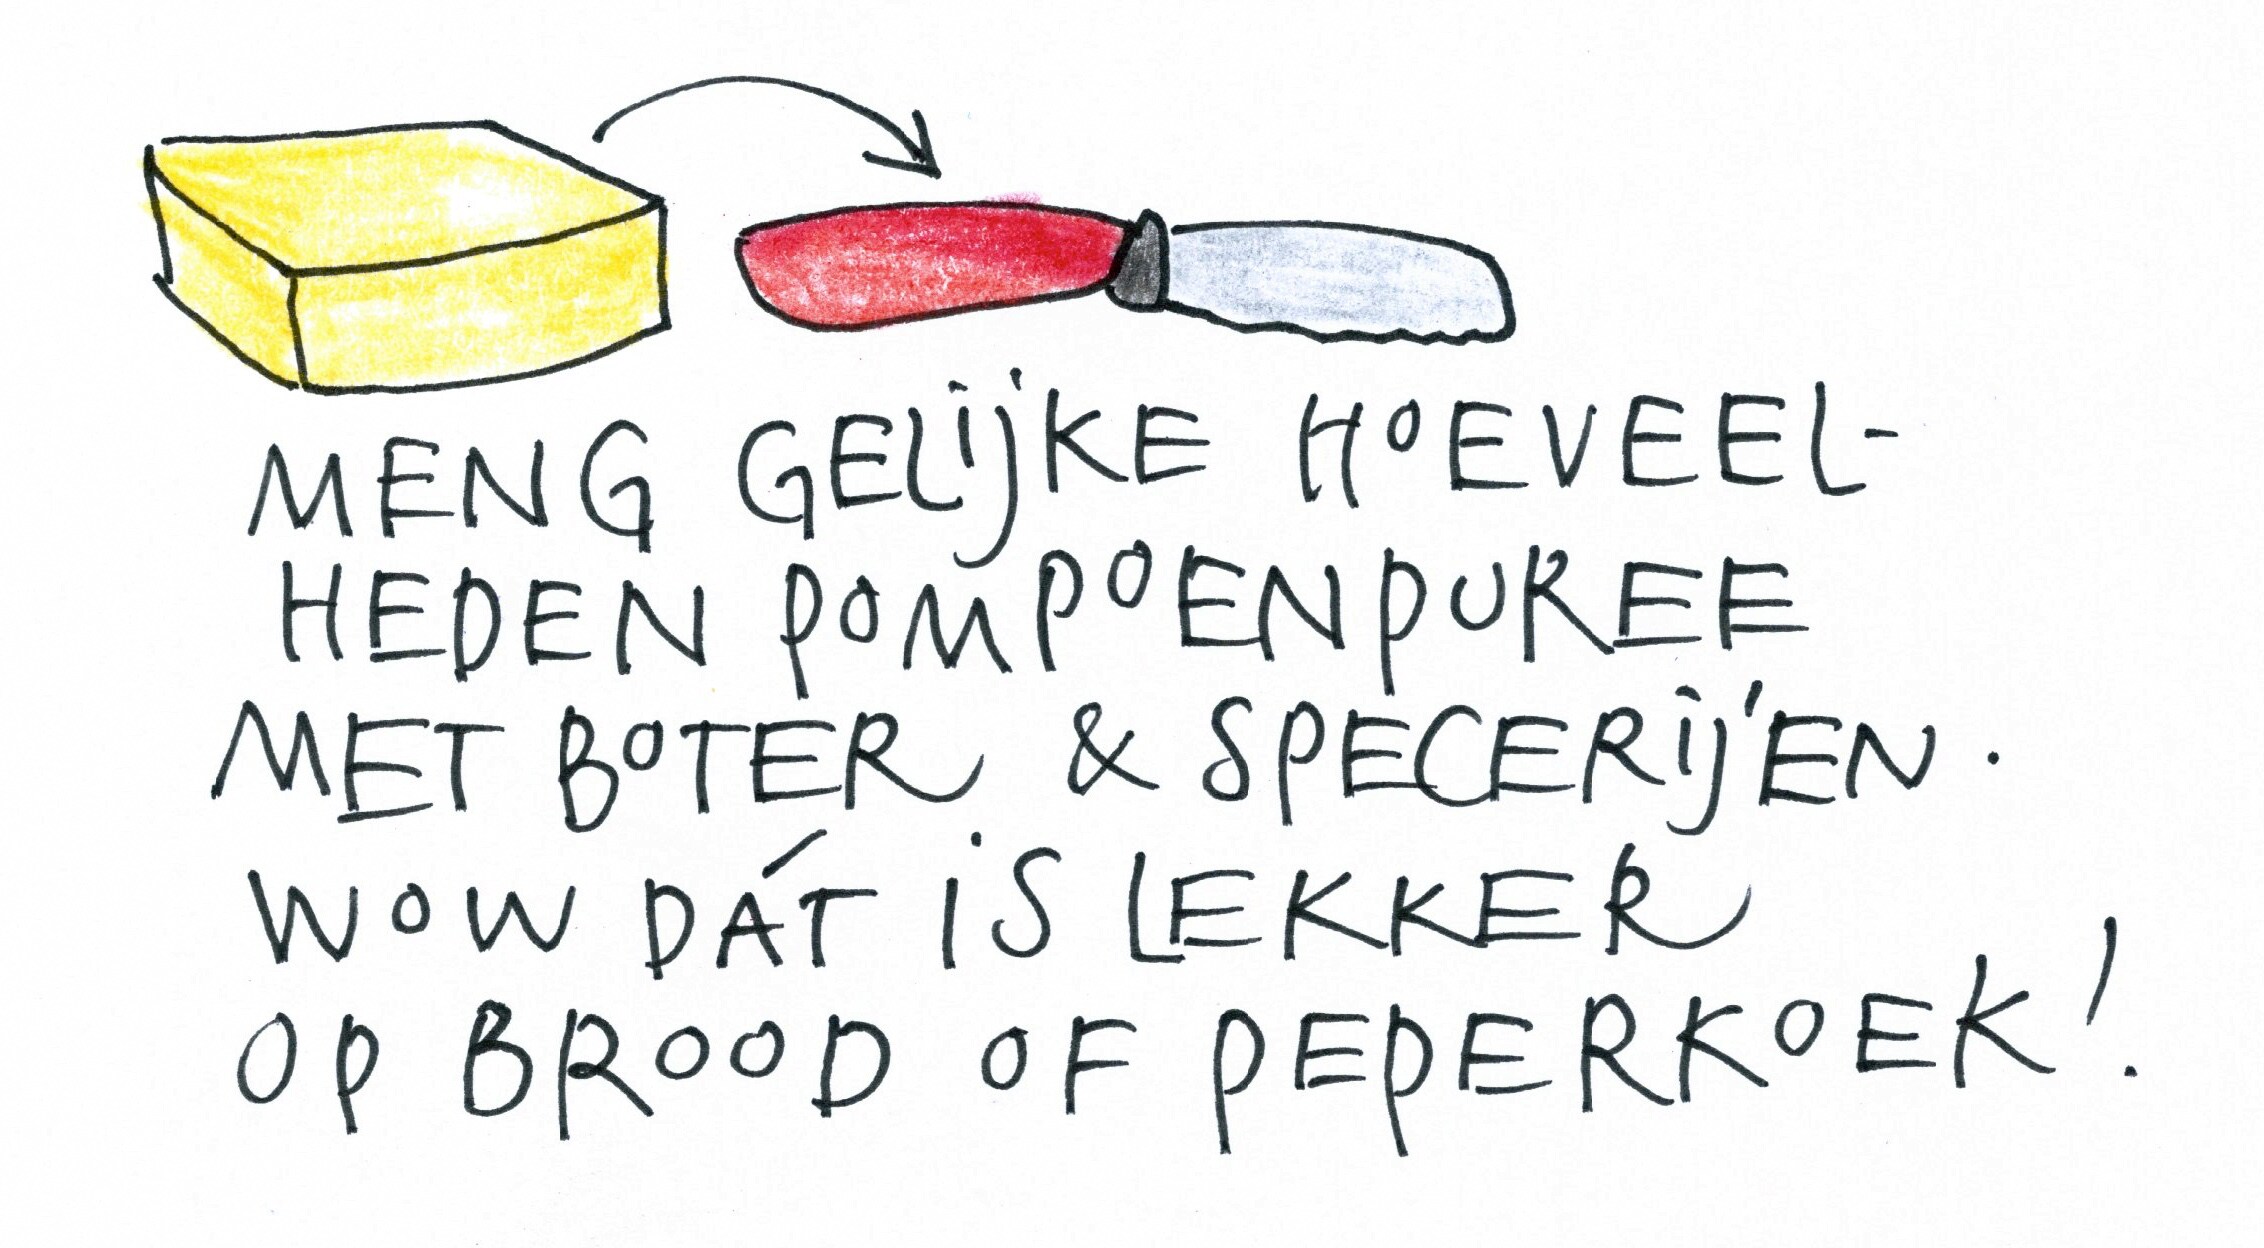 MENG GELIJKE HOEVEEL-
HEDEN POMPOENPUREE
MET BOTER & SPECERIJEN.
WOW DÁT IS LEKKER
OP BROOD OF PEPERKOEK!